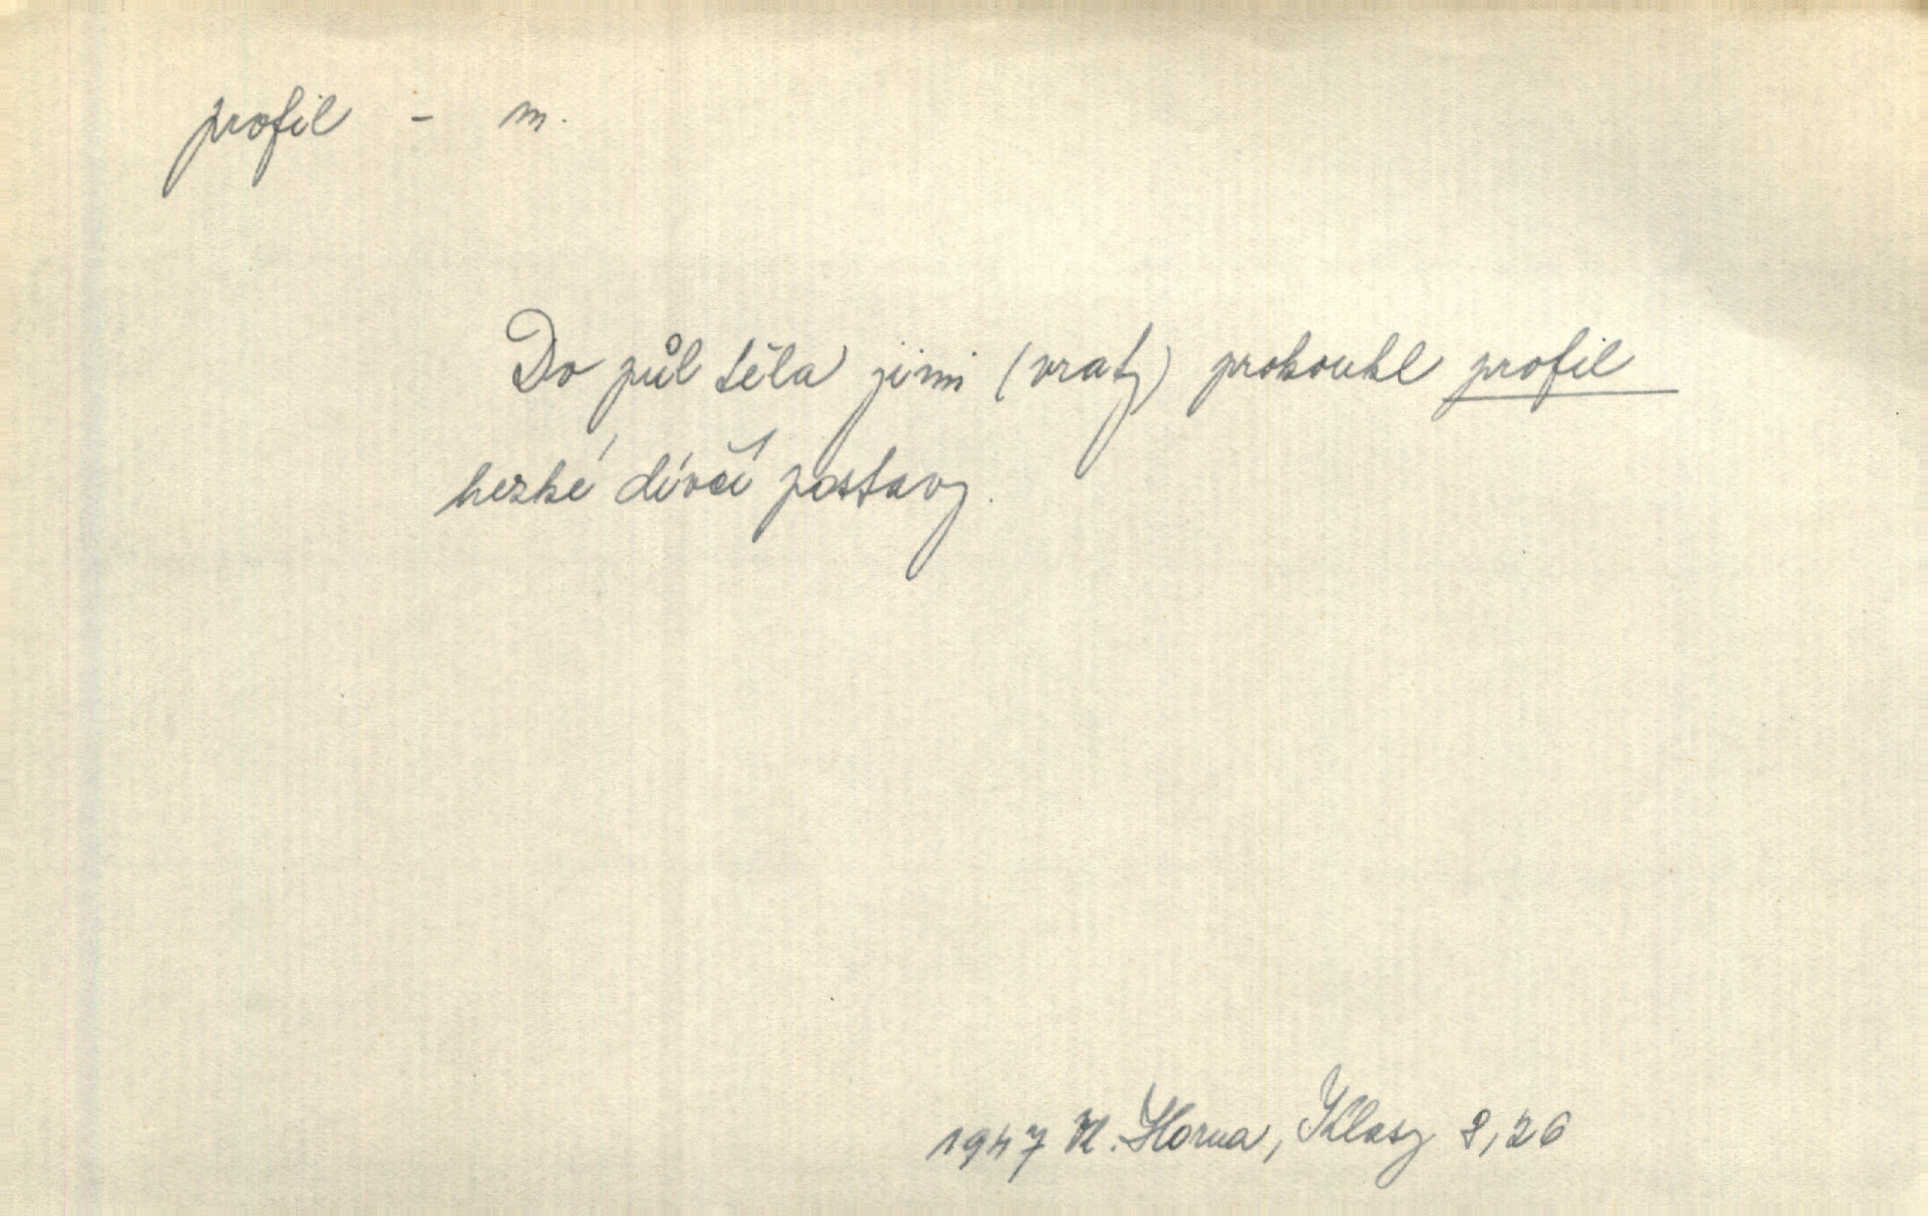 profil - m.
Do půl těla jimi (vraty) prokoukl profil
hezké dívčí postavy.
1947 K. Horna, Klasy 8, 26